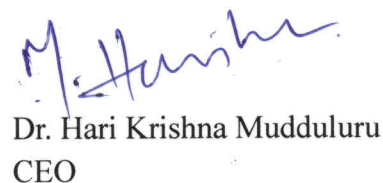 M. Harisha
Dr. Hari Krishna Mudduluru
CEO